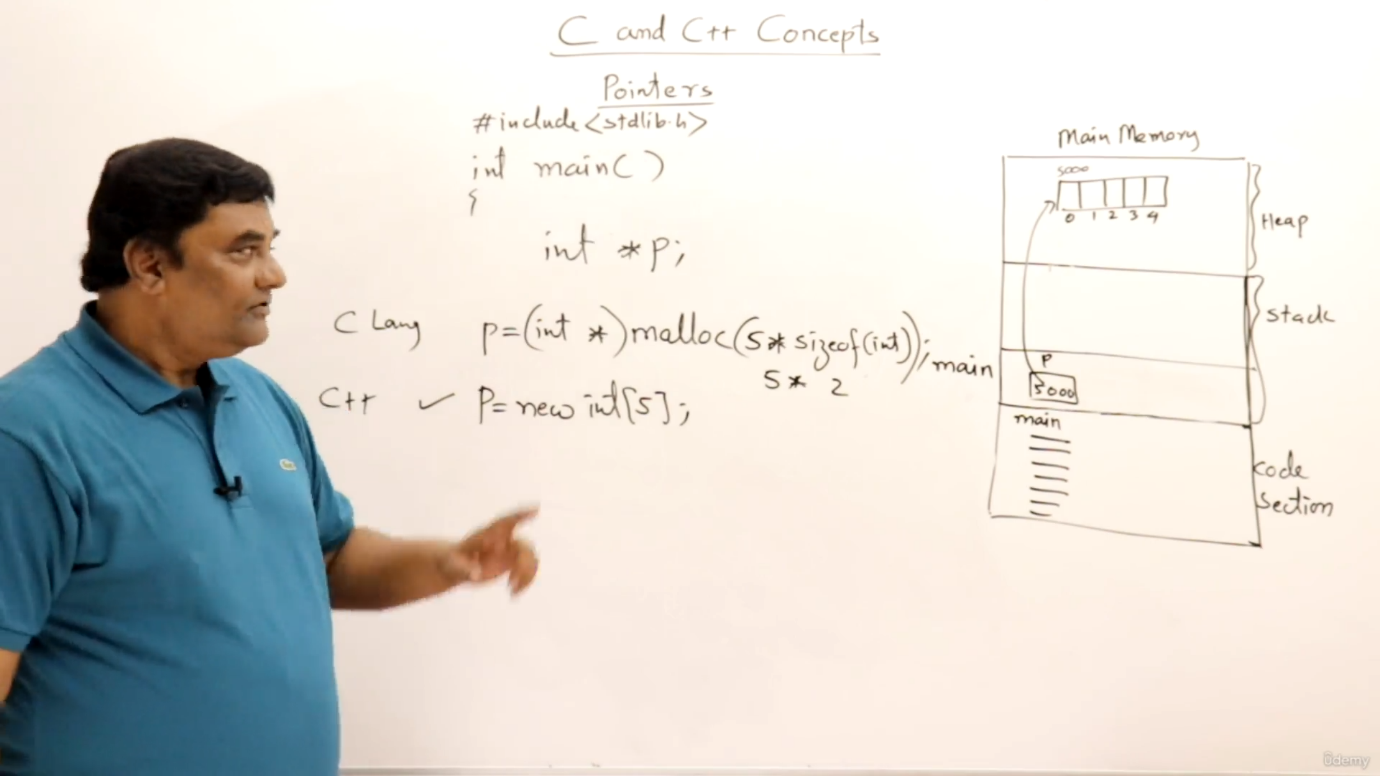 C and C++ Concepts
Pointers
#include <stdlib.h>
int main()
{
int *p;
C Lang p=(int *)malloc(5*sizeof(int));
5* 2
C++ ✓ P=new int[5];
Main Memory
5000
0 1 2 3 4
Heap
Stack
main
P
5000
main
Code
Section
ûdemy